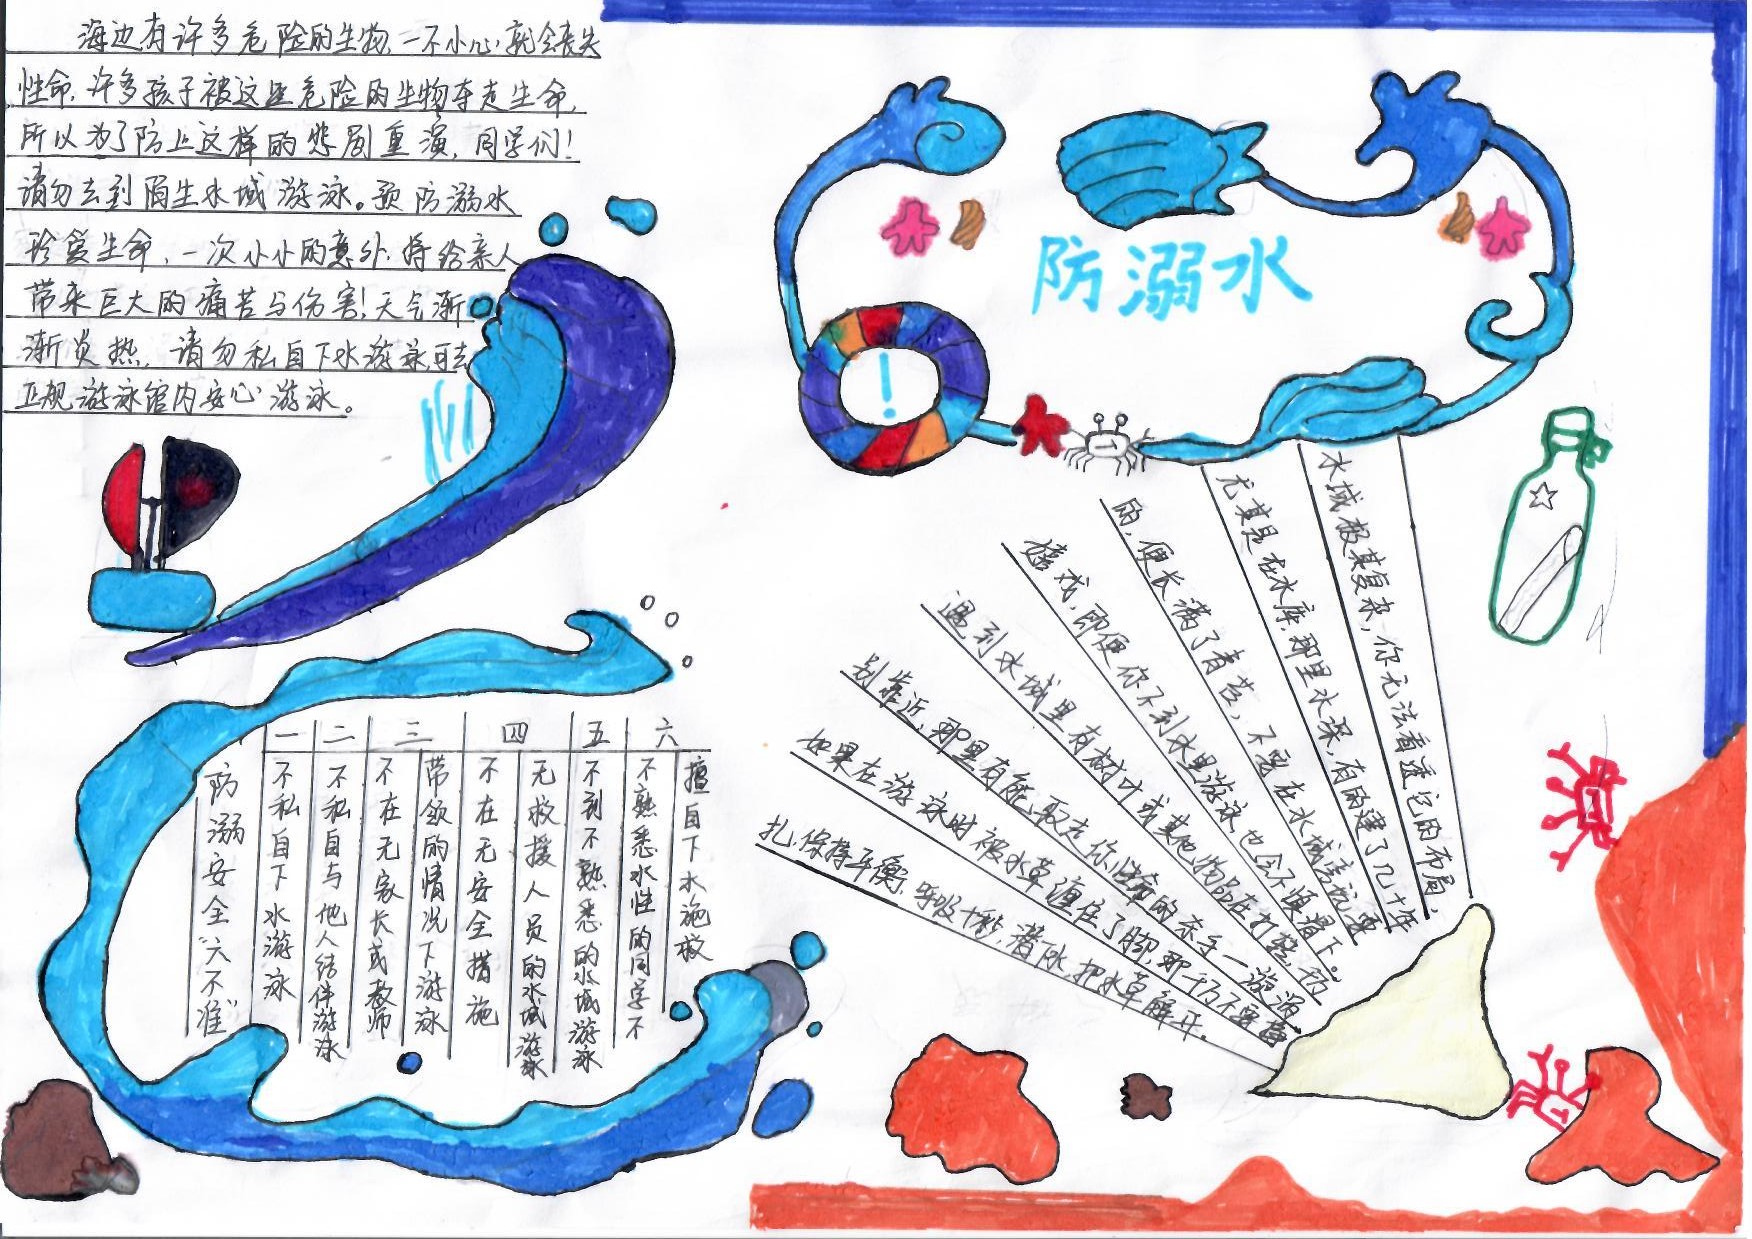 海边有许多危险的生物,一不小心,就会丧失
性命,许多孩子被这些危险的生物夺走生命,
所以为了防止这样的悲剧重演,同学们!
请勿去到陌生水域游泳。预防溺水
珍爱生命,一次小小的意外,将给亲人
带来巨大的痛苦与伤害!天气渐
渐炎热,请勿私自下水游泳可去
正规游泳馆内安心游泳。
防溺水
!
水域极其复杂,你无法看透它的布局,
尤其是在水库,那里水深,有的建了几十年
的,便长满了青苔,不要在水域旁玩耍
嬉戏,即便你不到水里游泳也会不慎滑下。
遇到水域里有树叶或其他物品在打转,千万
别靠近,那里有能取走你性命的杀手—漩涡
如果在游泳时被水草缠住了脚,那千万不要挣
扎,保持平衡,呼吸十秒,潜下水,把水草解开。
防溺安全“六不准”
一 不私自下水游泳
二 不私自与他人结伴游泳
三 不在无家长或教师
带领的情况下游泳
四 不在无安全措施
无救援人员的水域游泳
五 不到不熟悉的水域游泳
六 不熟悉水性的同学不
擅自下水施救